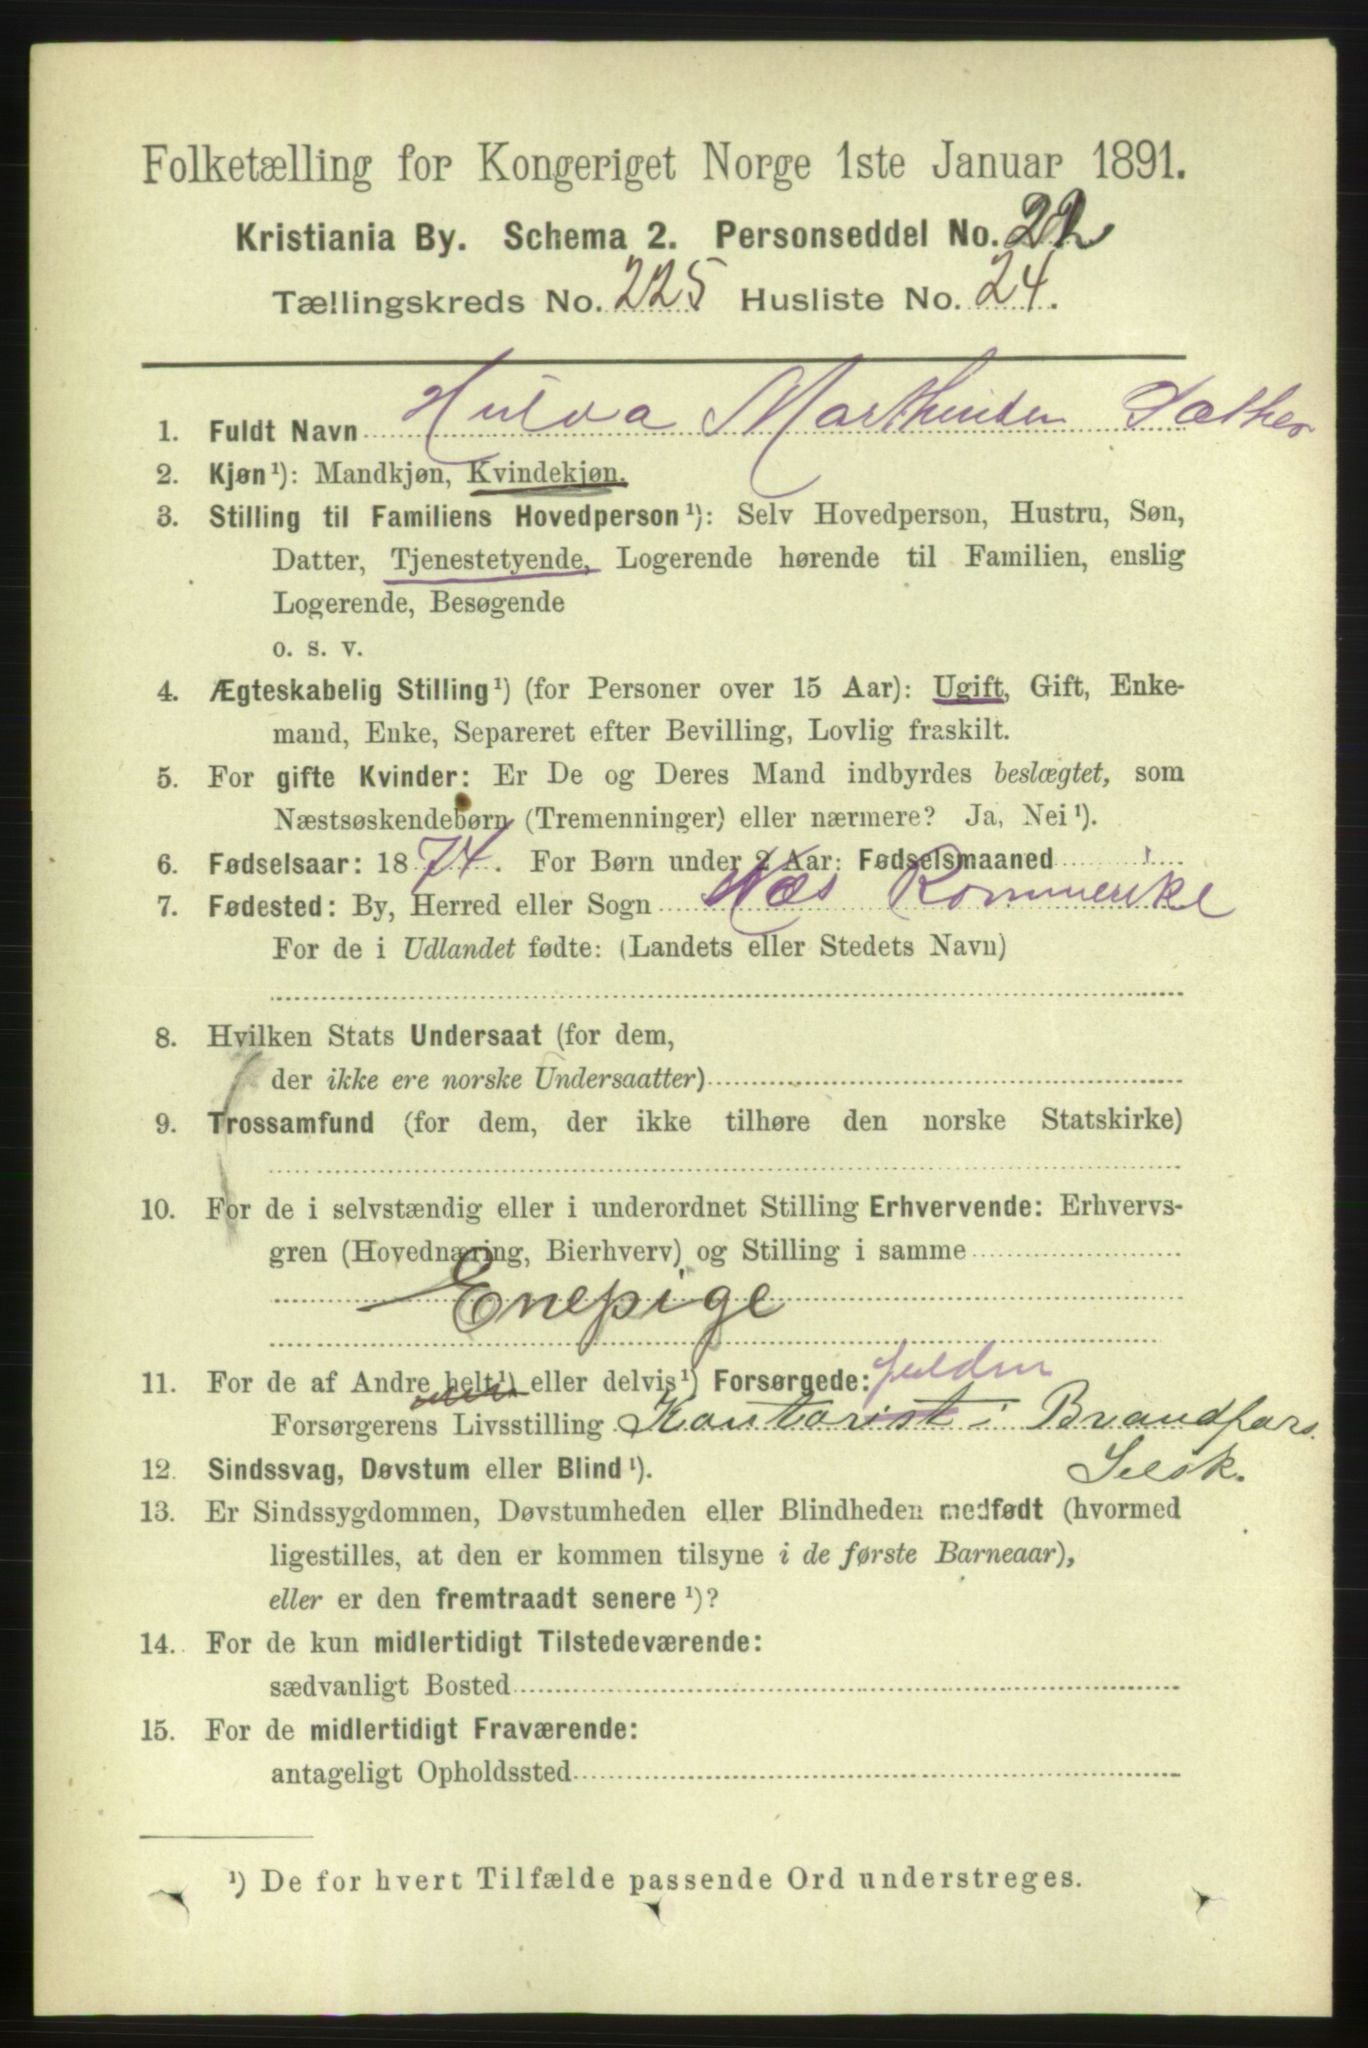 Folketælling for Kongeriget Norge 1ste Januar 1891.
Kristiania By. Schema 2. Personseddel No. 22
Tællingskreds No. 225 Husliste No. 24.
1. Fuldt Navn Hulda Marthinsen Sæther
2. Kjøn¹): Mandkjøn, Kvindekjøn.
3. Stilling til Familiens Hovedperson¹): Selv Hovedperson, Hustru, Søn,
Datter, Tjenestetyende, Logerende hørende til Familien, enslig
Logerende, Besøgende
o. s. v.
4. Ægteskabelig Stilling¹) (for Personer over 15 Aar): Ugift, Gift, Enke-
mand, Enke, Separeret efter Bevilling, Lovlig fraskilt.
5. For gifte Kvinder: Er De og Deres Mand indbyrdes beslægtet, som
Næstsøskendebørn (Tremenninger) eller nærmere? Ja, Nei¹).
6. Fødselsaar: 1874. For Børn under 2 Aar: Fødselsmaaned
7. Fødested: By, Herred eller Sogn Næs Rommerike
For de i Udlandet fødte: (Landets eller Stedets Navn)
8. Hvilken Stats Undersaat (for dem,
der ikke ere norske Undersaatter)
9. Trossamfund (for dem, der ikke tilhøre den norske Statskirke)
10. For de i selvstændig eller i underordnet Stilling Erhvervende: Erhvervs-
gren (Hovednæring, Bierhverv) og Stilling i samme
Enepige
11. For de af Andre helt¹) eller delvis¹) Forsørgede:
Forsørgerens Livsstilling Kontorist i Brandfors.
Selsk.
12. Sindssvag, Døvstum eller Blind¹).
13. Er Sindssygdommen, Døvstumheden eller Blindheden medfødt (hvormed
ligestilles, at den er kommen tilsyne i de første Barneaar),
eller er den fremtraadt senere¹)?
14. For de kun midlertidigt Tilstedeværende:
sædvanligt Bosted
15. For de midlertidigt Fraværende:
antageligt Opholdssted
¹) De for hvert Tilfælde passende Ord understreges.